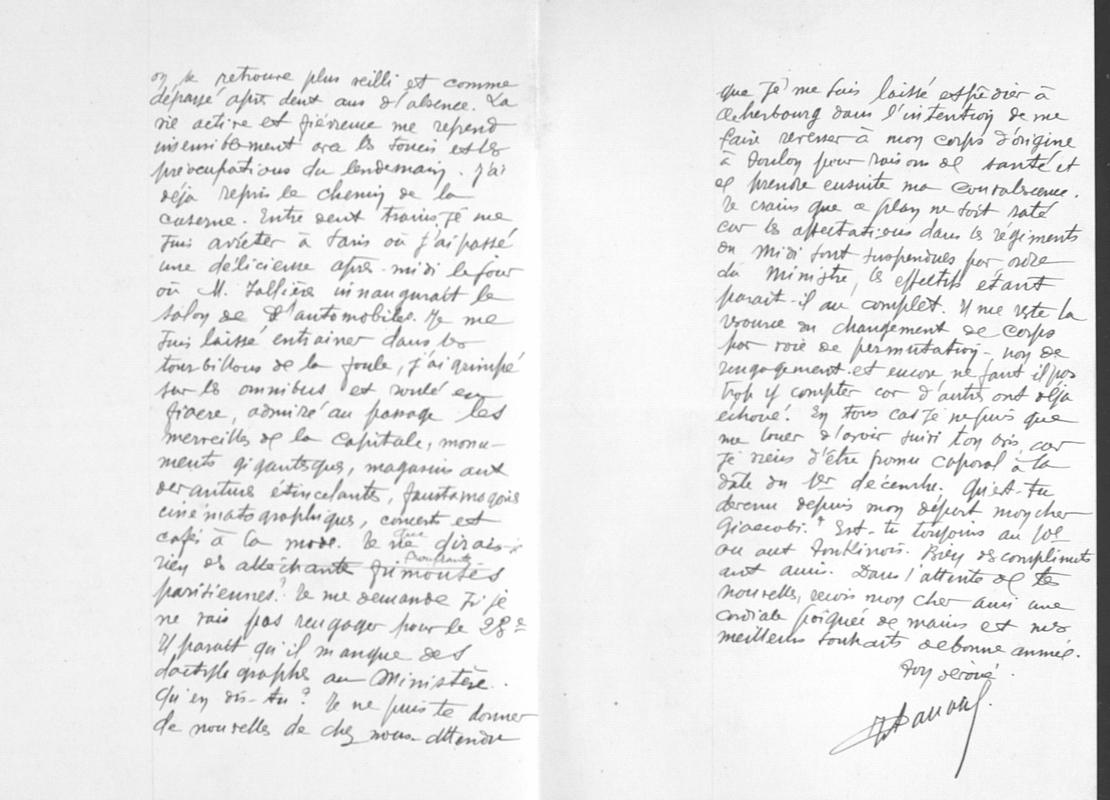 on se retrouve plus vieilli et comme
dépassé après deux ans d'absence. La
vie active et fiévreuse me reprend
insensiblement avec les soucis et les
préocupations du lendemain. J'ai
déja repris le chemin de la
caserne. Entre deux trains je me
suis arrêter à Paris où j'ai passé
une délicieuse après-midi le jour
où M. Fallières inaugurait le
salon de l'automobile. Je me
suis laissé entrainer dans les
tourbillons de la foule, j'ai grimpé
sur les omnibus et roulé en
fiacre, admiré au passage les
merveilles de la capitale, monu-
ments gigantesques, magasins aux
devantures étincelantes, fantasmagories
cinématographiques, concerts et
cafés à la mode. Je ne dirais
que
rien des alléchante frimousses
parisiennes? Je me demande si je
ne vais pas rengager pour le 28e
Il parait qu'il manque des
dactylographes au Ministère.
Qu'en dis-tu? Je ne puis te donner
de nouvelles de chez nous attendu
que je me suis laissé expédier à
Cherbourg dans l'intention de me
faire reverser à mon corps d'origine
à Toulon pour raisons de santé et
de prendre ensuite ma convalescence.
Je crains que ce plan ne soit raté
car les affectations dans les régiments
du Midi sont suspendues par ordre
du Ministre, les effectifs étant
parait-il au complet. Il me reste la
ressource du changement de corps
par voie de permutation - non de
rengagement et encore ne faut il pas
trop y compter car d'autres ont déjà
échoué! En tous cas je ne puis que
me louer d'avoir suivi ton avis car
je viens d'être promu caporal à la
date du 1er décembre. Qu'es-tu
devenu depuis mon départ mon cher
Giacobi? Est-tu toujours au
ou aux Tonkinois. Bien des compliments
aux amis. Dans l'attente de tes
nouvelles, reçois mon cher ami une
cordiale poignée de mains et mes
meilleurs souhaits de bonne année.
Ton dévoué.